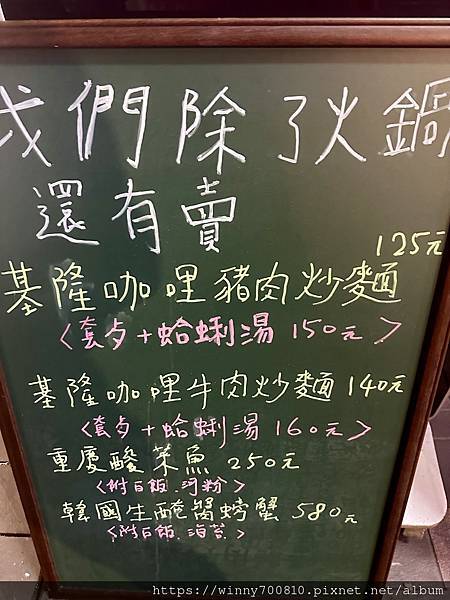 我們除了火鍋
還有賣
125元
基隆咖哩豬肉炒麵
<套夕+蛤蜊湯 150元>
基隆咖哩牛肉炒麵 140元
<套夕+蛤蜊湯 160元>
重慶酸菜魚 250元
<附白飯.河粉>
韓國生醃醬螃蟹 580元
<附白飯.海苔>
https://winny700810.pixnet.net/album